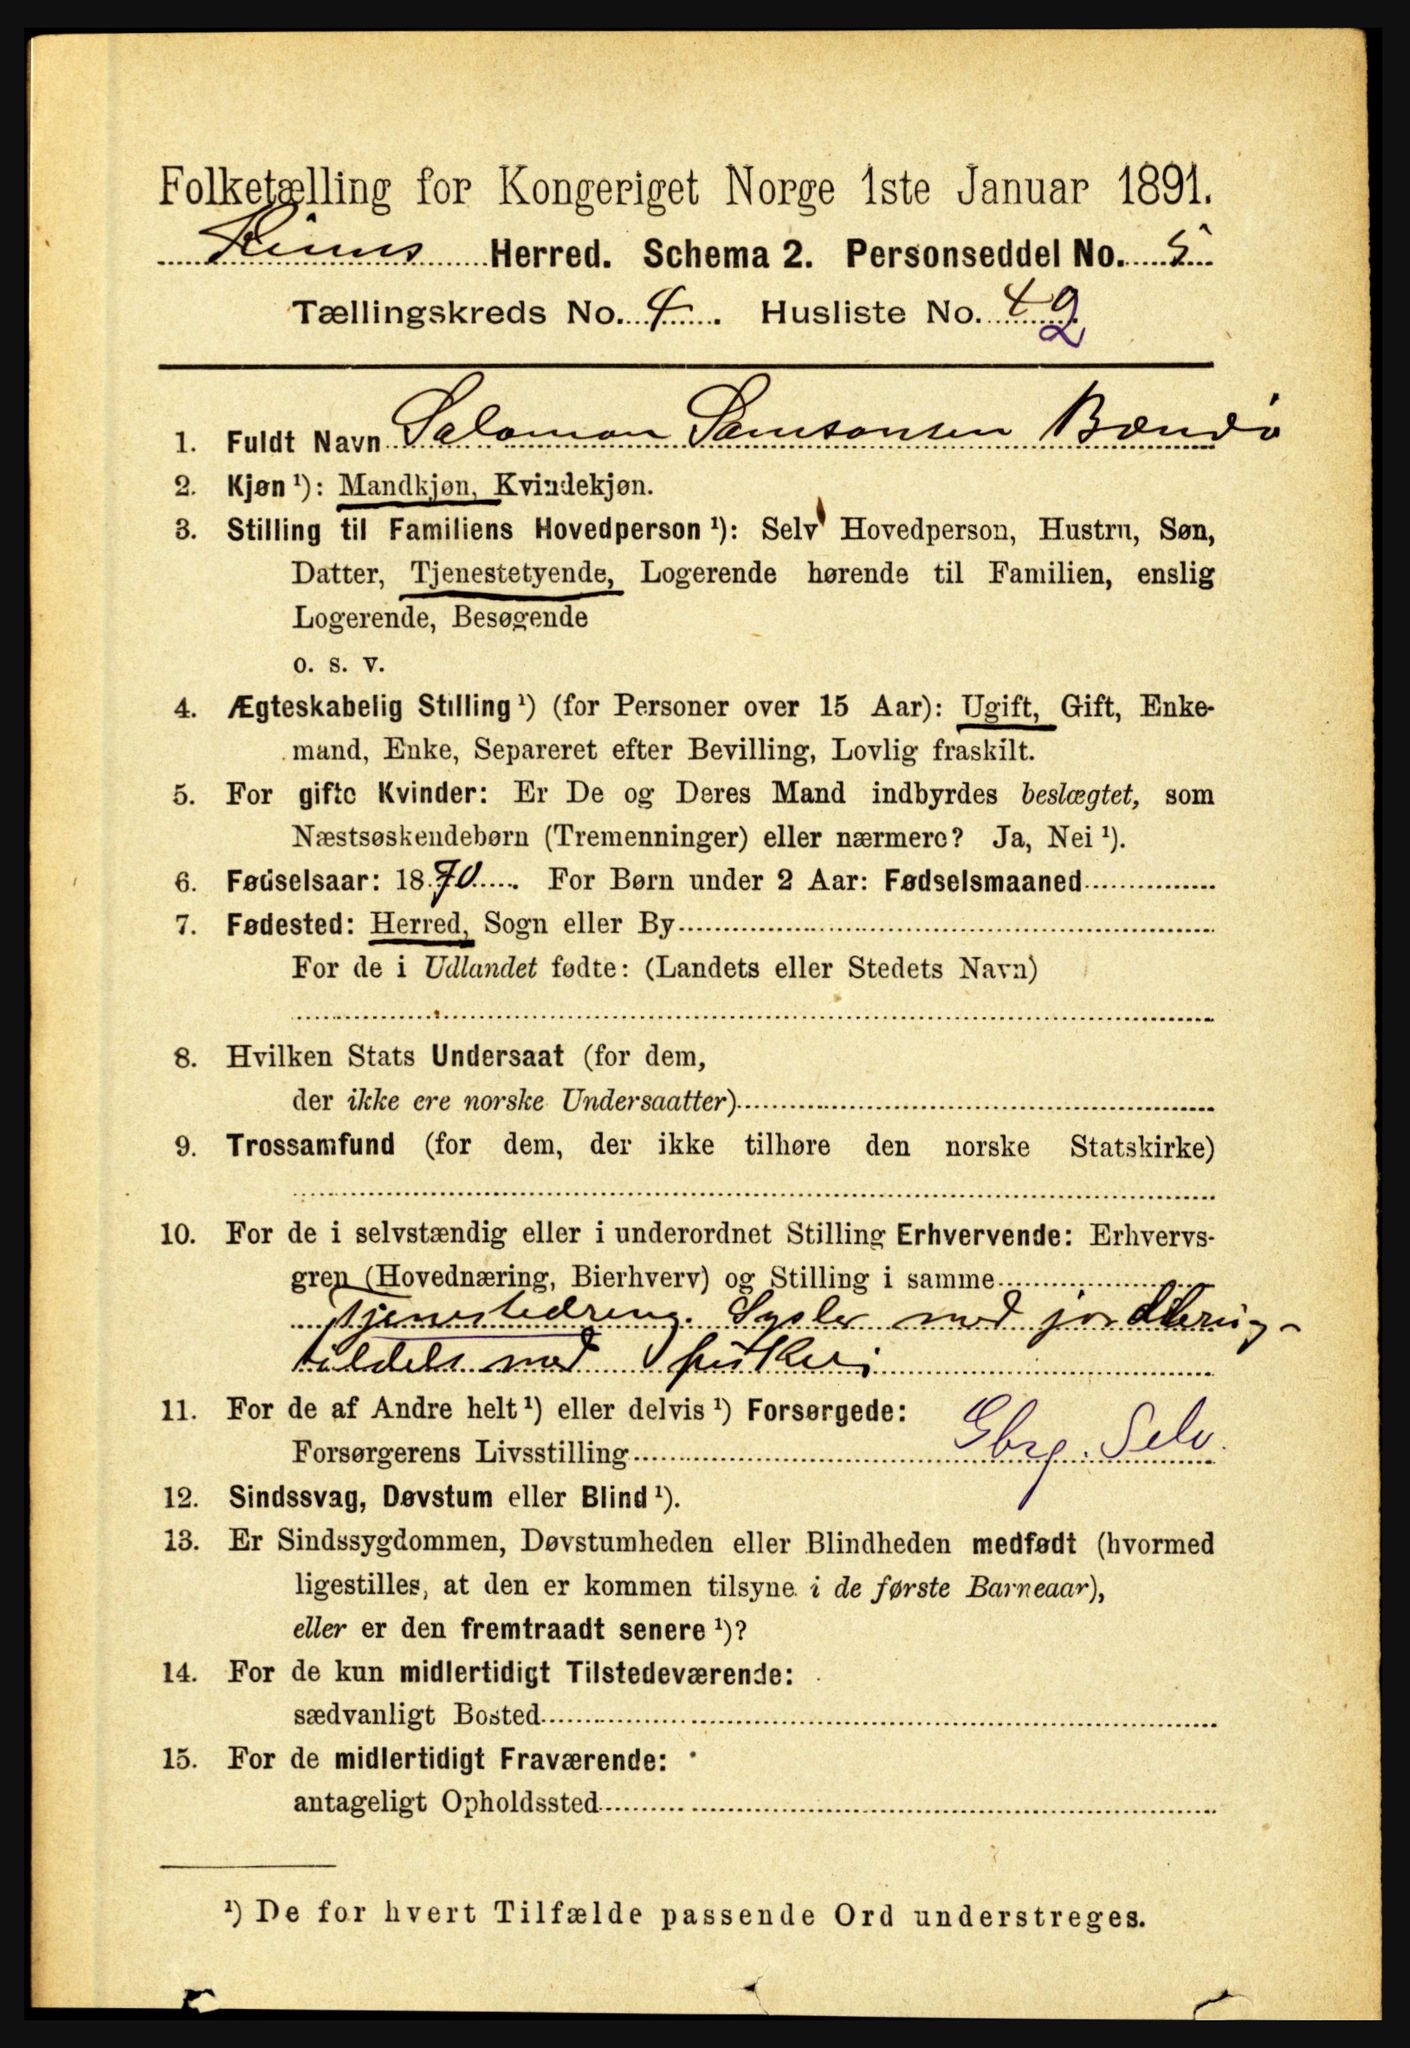 Folketælling for Kongeriget Norge 1ste Januar 1891.
Kinns Herred. Schema 2. Personseddel No. 5
Tællingskreds No. 4. Husliste No. 42
1. Fuldt Navn Salomon Samsonsen Bændø
2. Kjøn ¹): Mandkjøn, Kvindekjøn.
3. Stilling til Familiens Hovedperson ¹): Selv Hovedperson, Hustru, Søn,
Datter, Tjenestetyende, Logerende hørende til Familien, enslig
Logerende, Besøgende
o. s. v.
4. Ægteskabelig Stilling ¹) (for Personer over 15 Aar): Ugift, Gift, Enke-
mand, Enke, Separeret efter Bevilling, Lovlig fraskilt.
5. For gifte Kvinder: Er De og Deres Mand indbyrdes beslægtet, som
Næstsøskendebørn (Tremenninger) eller nærmere? Ja, Nei ¹).
6. Fødselsaar: 1870. For Børn under 2 Aar: Fødselsmaaned
7. Fødested: Herred, Sogn eller By
For de i Udlandet fødte: (Landets eller Stedets Navn)
8. Hvilken Stats Undersaat (for dem,
der ikke ere norske Undersaatter)
9. Trossamfund (for dem, der ikke tilhøre den norske Statskirke)
10. For de i selvstændig eller i underordnet Stilling Erhvervende: Erhvervs-
gren (Hovednæring, Bierhverv) og Stilling i samme
Tjenestedreng. Sysler med jorddering-
tildels med fiskeri
11. For de af Andre helt ¹) eller delvis ¹) Forsørgede:
Forsørgerens Livsstilling Gbrg. Selv.
12. Sindssvag, Døvstum eller Blind ¹).
13. Er Sindssygdommen, Døvstumheden eller Blindheden medfødt (hvormed
ligestilles, at den er kommen tilsyne i de første Barneaar),
eller er den fremtraadt senere ¹)?
14. For de kun midlertidigt Tilstedeværende:
sædvanligt Bosted
15. For de midlertidigt Fraværende:
antageligt Opholdssted
¹) De for hvert Tilfælde passende Ord understreges.